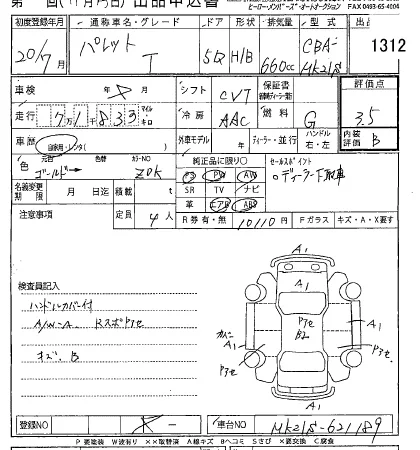 (11月15日) 出品申込書
ヒーローメンバーズ・オートオークション FAX 0493-65-4004
初度登録年月 通称車名・グレード ドア 形状 排気量 型式 出品
20/7 パレット T 5D H/B 660cc CBA-MK21S 1312
車検 年 月 シフト CVT 保証書 評価点
走行 7 1 8 3 3 マイル・キロ 冷房 AAC 燃料 G 3.5
車歴 自家用・レンタ 外車モデル 年 ディーラー・並行 ハンドル 右・左 内装評価 B
色 元色 ゴールド 色替 カラーNO ZDK
純正品に限り○ セールスポイント
PS PW AW
○ディーラー下取車
SR TV ナビ
革 エアB ABS
名義変更期限 月 日迄 積載 t
注意事項 定員 4人
R券 有・無 10110円 Fガラス キズ・A・X要す
検査員記入
ハンドルカバー付
A/W-A RスポアセP
キズ、B
A1
A1
A1
A1
カバー
登録NO 車台NO MK21S-621189
P要塗装 W波有り ××取替済 A線キズ Bヘコミ Sさび ×要交換 C腐食